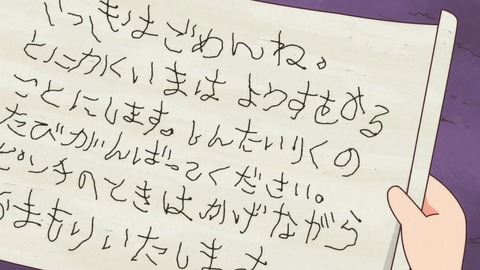 いつもはごめんね。
とにかくいまは ようすをみる
ことにします。しんたいりくの
たびがんばってください。
ピンチのときは かげながら
おまもりいたします